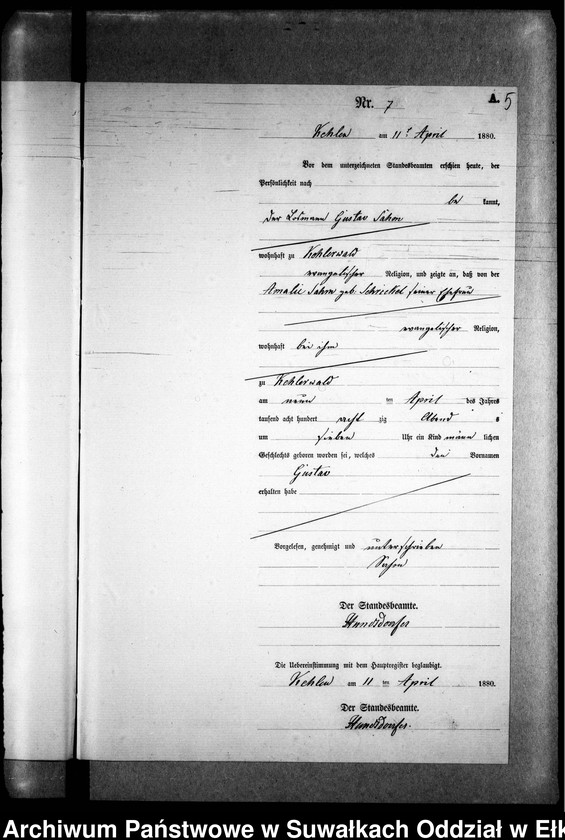 A. 5
Nr. 7
Kehlen am 11t April 1880.
Vor dem unterzeichneten Standesbeamten erschien heute, der
Persönlichkeit nach
be kannt,
der Losmann Gustav Sahm
wohnhaft zu Kehlerwald
evangelischer Religion, und zeigte an, daß von der
Amalie Sahm geb. Schrickel seiner Ehefrau
evangelischer Religion,
wohnhaft bei ihm
zu Kehlerwald
am neun ten April des Jahres
tausend acht hundert acht zig Abend s
um sieben Uhr ein Kind männ lichen
Geschlechts geboren worden sei, welches den Vornamen
Gustav
erhalten habe
Vorgelesen, genehmigt und unterschrieben
Sahm
Der Standesbeamte.
Die Uebereinstimmung mit dem Hauptregister beglaubigt.
Kehlen am 11 ten April 1880.
Der Standesbeamte.
Archiwum Państwowe w Suwałkach Oddział w Ełk